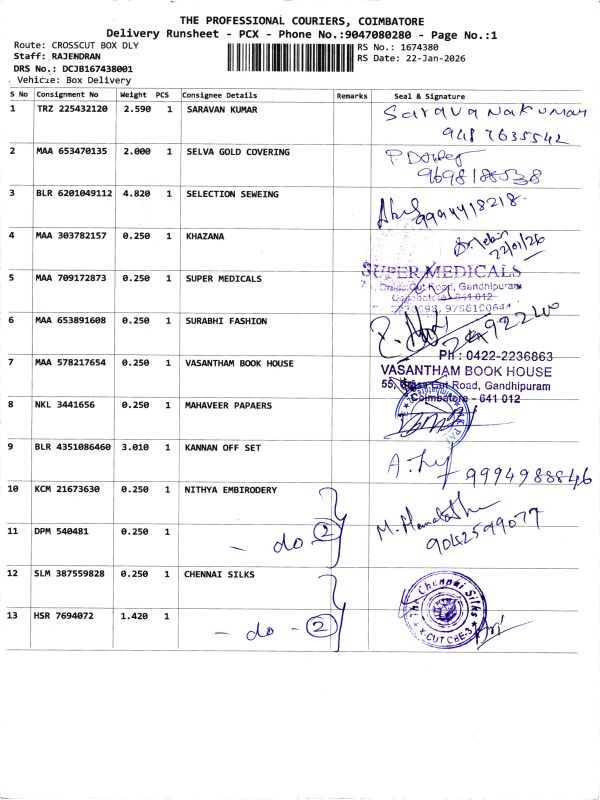 THE PROFESSIONAL COURIERS, COIMBATORE
Delivery Runsheet - PCX - Phone No.:9047080280 - Page No.:1
Route: CROSSCUT BOX DLY
Staff: RAJENDRAN
DRS No.: DCJB167438001
Vehicle: Box Delivery
RS No.: 1674380
RS Date: 22-Jan-2026
S No Consignment No Weight PCS Consignee Details Remarks Seal & Signature
1 TRZ 225432120 2.590 1 SARAVAN KUMAR SaravaNakumar
9487635542
2 MAA 653470135 2.000 1 SELVA GOLD COVERING
9698188538
3 BLR 6201049112 4.820 1 SELECTION SEWEING
9994418218
4 MAA 303782157 0.250 1 KHAZANA
22/01/26
5 MAA 709172873 0.250 1 SUPER MEDICALS SUPER MEDICALS
Cross Cut Road, Gandhipuram
Coimbatore - 641 012
6 MAA 653891608 0.250 1 SURABHI FASHION
7 MAA 578217654 0.250 1 VASANTHAM BOOK HOUSE
PH : 0422-2236863
VASANTHAM BOOK HOUSE
55, Cross Cut Road, Gandhipuram
Coimbatore - 641 012
8 NKL 3441656 0.250 1 MAHAVEER PAPAERS
9 BLR 4351086460 3.010 1 KANNAN OFF SET
9994988846
10 KCM 21673630 0.250 1 NITHYA EMBIRODERY
11 DPM 540481 0.250 1 - do - 2
9042599077
12 SLM 387559828 0.250 1 CHENNAI SILKS
The Chennai Silks
X-CUT CBE-3
13 HSR 7694072 1.420 1 - do - 2